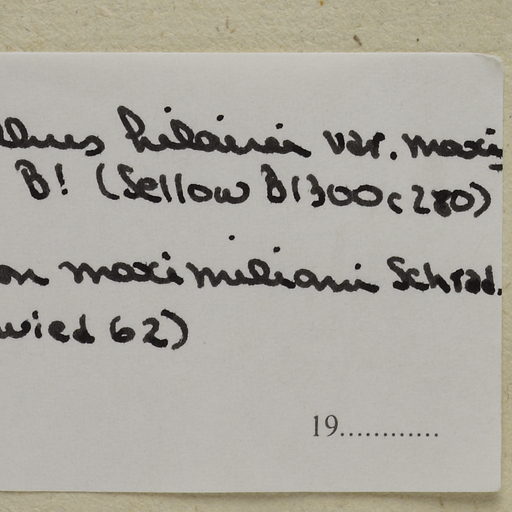 hilairei var. maxi
B! (Sellow B1300c280)
on maximiliani Schrad.
wied 62)
19............